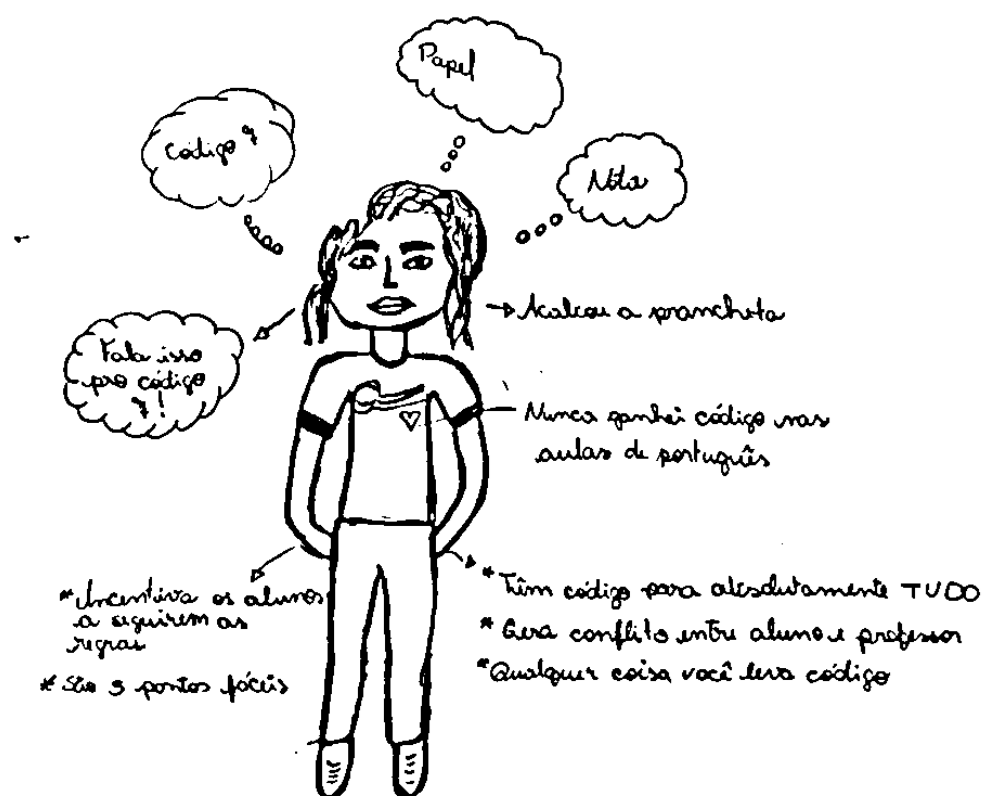 Papel
Código 7
Nota
Acabou a prancheta
Fala isso
pro código
7!
Nunca ganhei código nas
aulas de português
*Incentiva os alunos
a seguirem as
regras
* São 3 pontos fáceis
* Têm código para absolutamente TUDO
* Gera conflito entre aluno e professor
*Qualquer coisa você leva código